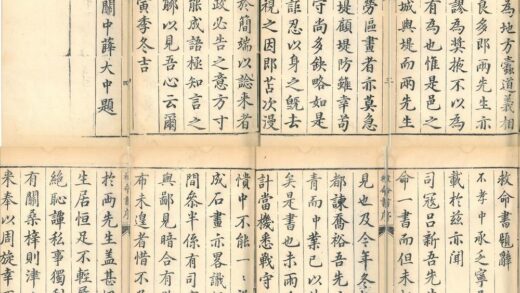 為地方蠹道義相
良多郎兩先生亦
謬為獎掖不以為
有為也惟是邑之
城與堤而兩先生
勞區畫者亦莫急
堤顧堤防雖幸苟
守尚多缺略如是
詎忍以身之既去
視之因即苦次漫
於簡端以諗來者
政必告之意方寸
能成語極知言之
聊以見吾心云爾
寅季冬吉
關中薛大中題
救命書題辭
不孝中承乏寧
載於茲亦聞
司寇呂新吾先
命一書而但未
救命書序
見也及今年冬
都諫喬裕吾先
青而中業已以
矣是書也未雨
計當機悉戰守
憤中不能一一
成石畫亦畧識
間參半係有司
與鄙見暗合有
布未遑者惜不
救命書序
於兩先生蓋甚
生居恒足不輕
絕恥譚私事獨
有關桑梓則津
來奉以周旋幸